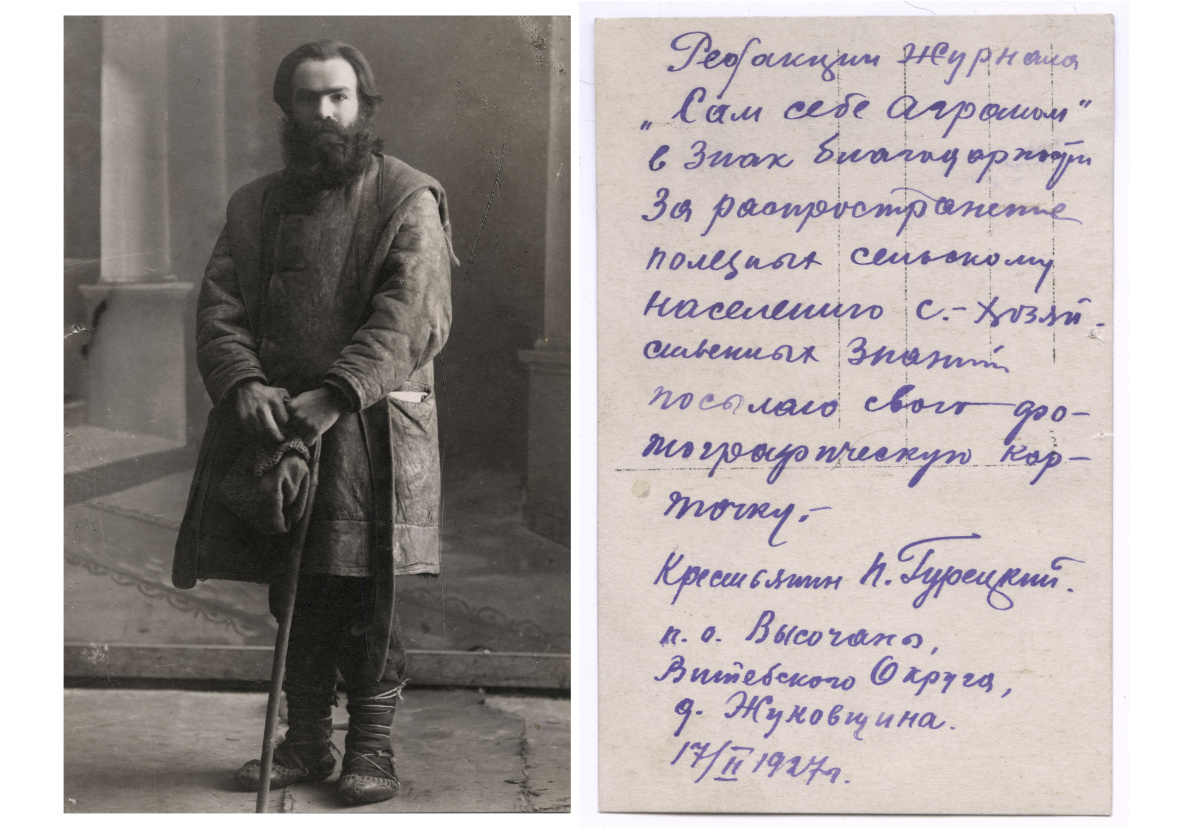 Редакции Журнала
„Сам себе Агроном"
в Знак благодарности
За распространение
полезных сельскому
населению с.-хозяй-
ственных Знаний
посылаю свою фо-
тографическую кар-
точку.-
Крестьянин П. Гурецкий.
п. о. Высочаны,
Витебского Округа,
д. Жуковщина.
17/II 1927г.